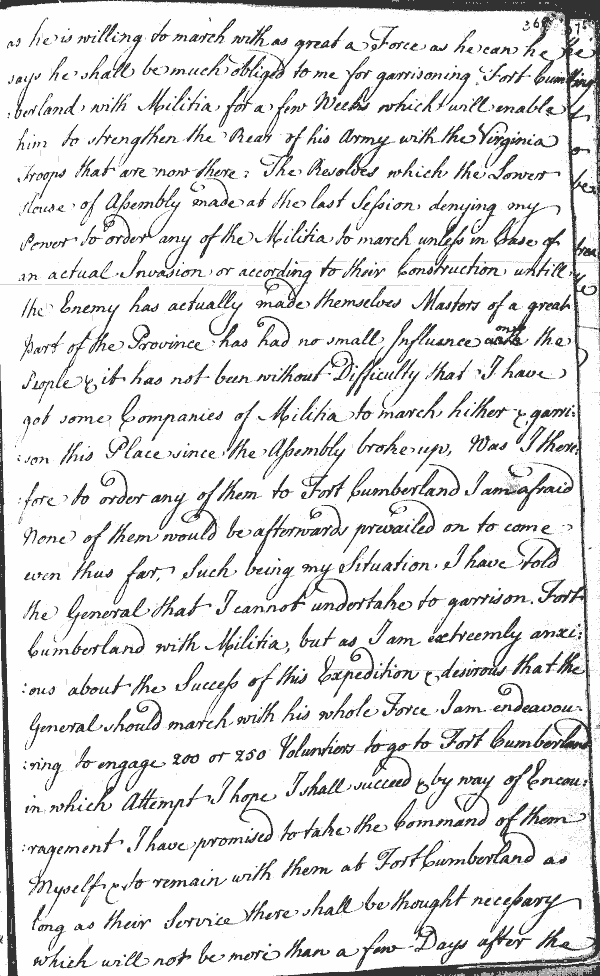 368
as he is willing to march with as great a Force as he can he
says he shall be much obliged to me for garrisoning Fort Cum
:berland with Militia for a few Weeks which will enable
him to strengthen the Rear of his Army with the Virginia
Troops that are now there: The Resolves which the Lower
House of Assembly made at the last Session denying my
Power to order any of the Militia to march unless in Case of
an actual Invasion or according to their Construction untill
the Enemy has actually made themselves Masters of a great
part of the Province has had no small Influence on the
People & it has not been without Difficulty that I have
got some Companies of Militia to march hither & garri:
:son this Place since the Assembly broke up, Was I there:
:fore to order any of them to Fort Cumberland I am afraid
None of them would be afterwards prevailed on to come
even thus far, Such being my Situation I have told
the General that I cannot undertake to garrison Fort
Cumberland with Militia, but as I am extreemly anxi:
:ous about the Success of this Expedition & desirous that the
General should march with his whole Force I am endeavou:
:ring to engage 200 or 250 Voluntiers to go to Fort Cumberland
in which Attempt I hope I shall succeed & by way of Encou:
:ragement I have promised to take the Command of them
Myself & to remain with them at Fort Cumberland as
long as their Service there shall be thought necessary
which will not be more than a few Days after the